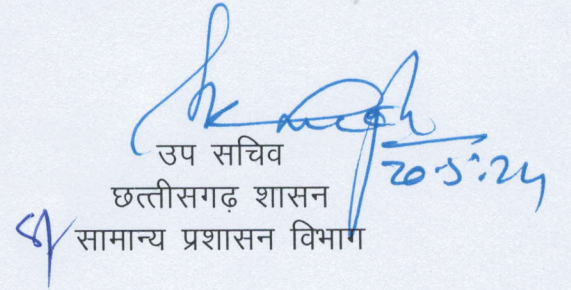 20.5.24
उप सचिव
छत्तीसगढ़ शासन
सामान्य प्रशासन विभाग